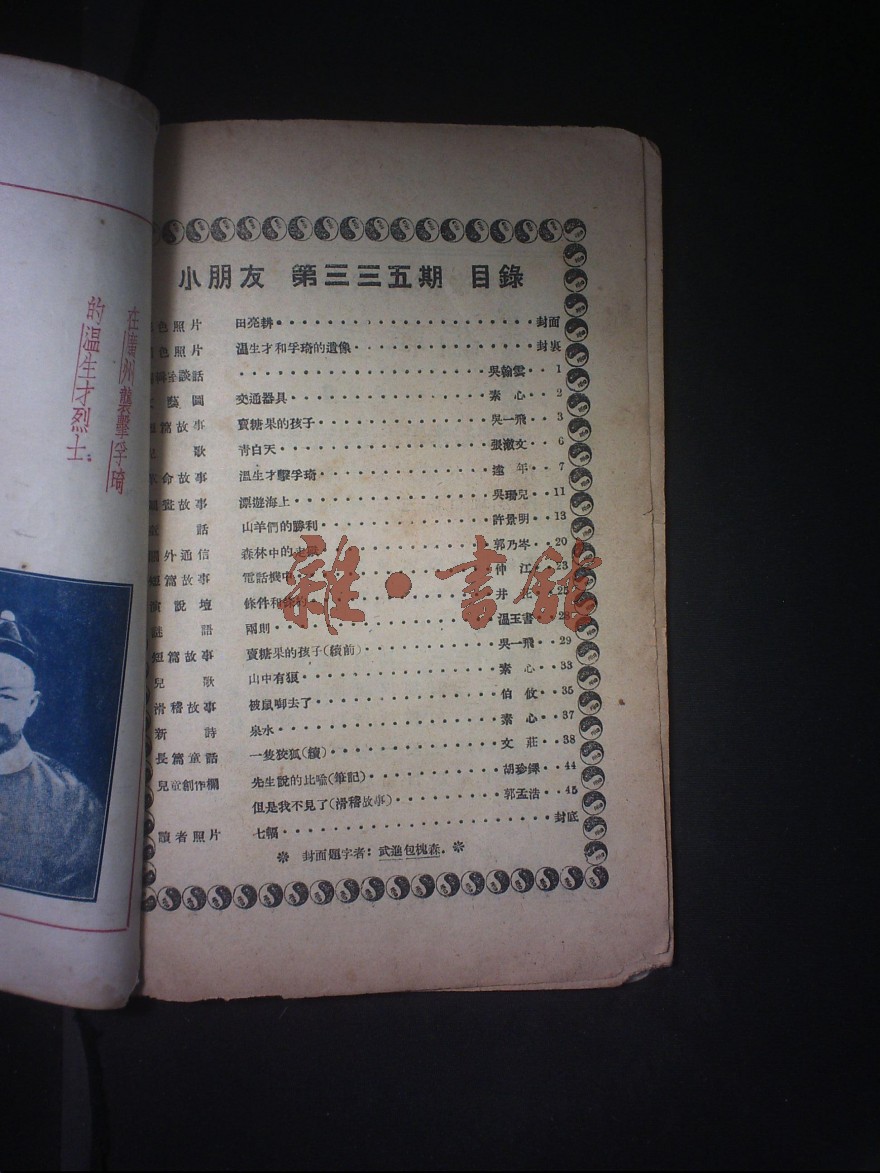 小朋友 第三三五期 目錄
色照片 田亮耕 封面
色照片 溫生才和孚琦的遺像 封裏
談話 吳翰雲 1
藝圃 交通器具 素心 2
篇故事 賣糖果的孩子 吳一飛 3
歌 青白天 張澈文 6
命故事 溫生才擊孚琦 遠年 7
故事 漂遊海上 吳珊兒 11
話 山羊們的勝利 許景明 13
外通信 森林中的 郭乃岑 20
短篇故事 電話機中 仲江 23
演說壇 條件和 井 25
謎語 兩則 溫玉書 28
短篇故事 賣糖果的孩子(續前) 吳一飛 29
兒歌 山中有狼 素心 33
滑稽故事 被鼠啣去了 伯攸 35
新詩 泉水 素心 37
長篇童話 一隻狡狐(續) 文莊 38
兒童創作欄 先生說的比喻(筆記) 胡珍鐸 44
但是我不見了(滑稽故事) 郭孟浩 45
讀者照片 七幅 封底
※ 封面題字者:武進包槐森. ※
在廣州襲擊孚琦
的溫生才烈士:
雜·書館